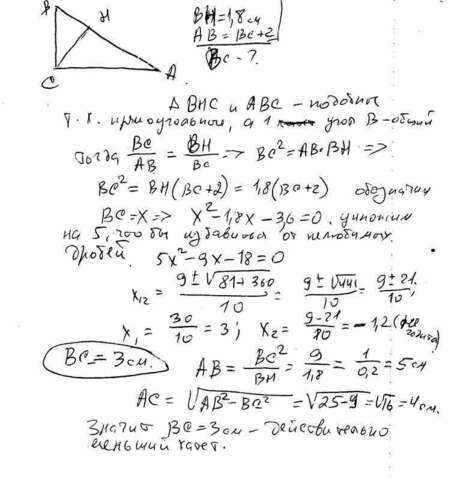 B
H
C
A
BH=1,8см
AB=BC+2
BC-?
Δ BHC и ABC – подобные
т.к. прямоугольные, а 1 угол B-общий
тогда BC/AB = BH/BC => BC²=AB·BH =>
BC²=BH(BC+2)=1,8(BC+2) обозначим
BC=x=> x²-1,8x-3,6=0. умножим
на 5, чтобы избавиться от нелюбимых
дробей. 5x²-9x-18=0
x₁₂ = 9±√81+360/10 = 9±√441/10 = 9±21/10;
x₁ = 30/10 = 3; x₂ = 9-21/10 = -1,2 (не годится)
BC=3см. AB = BC²/BH = 9/1,8 = 1/0,2 = 5см
AC = √AB²-BC² = √25-9 = √16 = 4см.
Значит BC=3см – действительно
меньший катет.